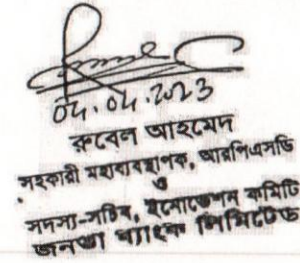 04.04.2023
রুবেল আহমেদ
সহকারী মহাব্যবস্থাপক, আরপিএসডি
ও
সদস্য-সচিব, ইনোভেশন কমিটি
জনতা ব্যাংক লিমিটেড